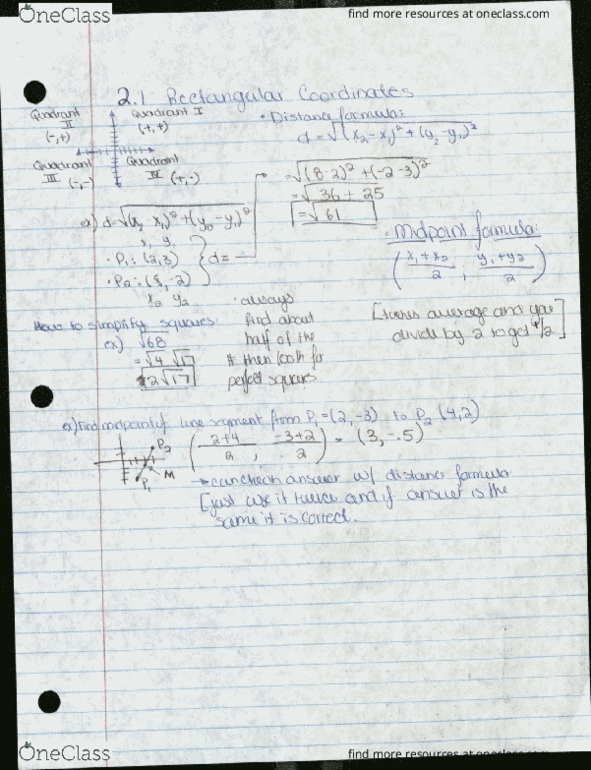 OneClass
find more resources at oneclass.com
2.1 Rectangular Coordinates
Quadrant II (-,+)
Quadrant I (+,+)
Quadrant III (-,-)
Quadrant IV (+,-)
• Distance formula:
d = √(x₂ - x₁)² + (y₂ - y₁)²
ex) d = √(x₂ - x₁)² + (y₂ - y₁)²
x₁ y₁
• P₁: (2,3)
• P₂: (8,-2)
x₂ y₂
d =
= √(8-2)² + (-2-3)²
= √36 + 25
= √61
• Midpoint formula:
(x₁+x₂/2, y₁+y₂/2)
average and
divide by 2 to get
How to simplify squares
ex) √68
= √4 √17
2√17
• always
find about
half of the
# then look for
perfect squares
ex) Find midpoint of line segment from P₁ = (2,-3) to P₂ (4,2)
(2+4/2, -3+2/2) = (3,-.5)
P₂
M
P₁
→ can check answer w/ distance formula
[just use it twice and if answer is the
same it is correct.
OneClass
find more resources at oneclass.com